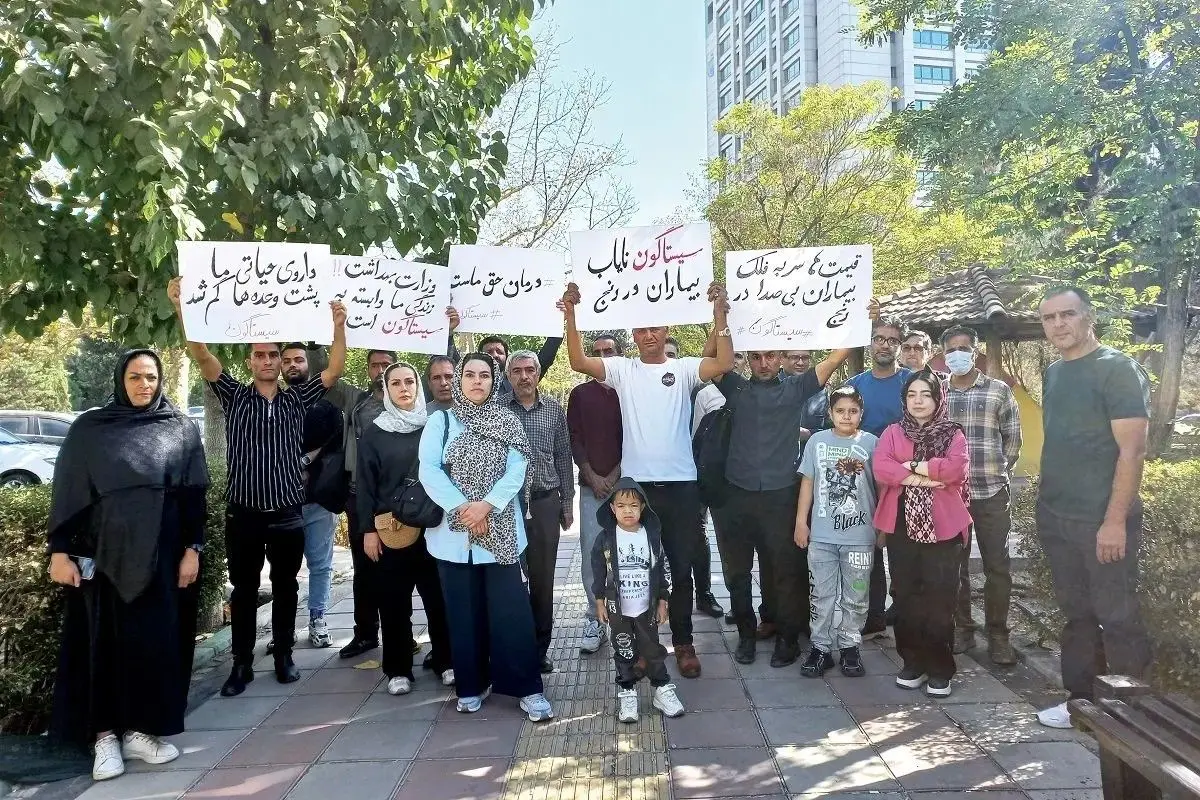 قیمت ها سر به فلک
بیماران بی صدا در
رنج
#سیستاگون#
سیستاگون نایاب
بیماران در رنج
#درمان حق ماست
#سیستاگون
وزارت بهداشت !!
زندگی ما وابسته به
سیستاگون است
داروی حیاتی ما
پشت وعده ها گم شد
سیستاگون
LIVE LIKE A
KING
Black